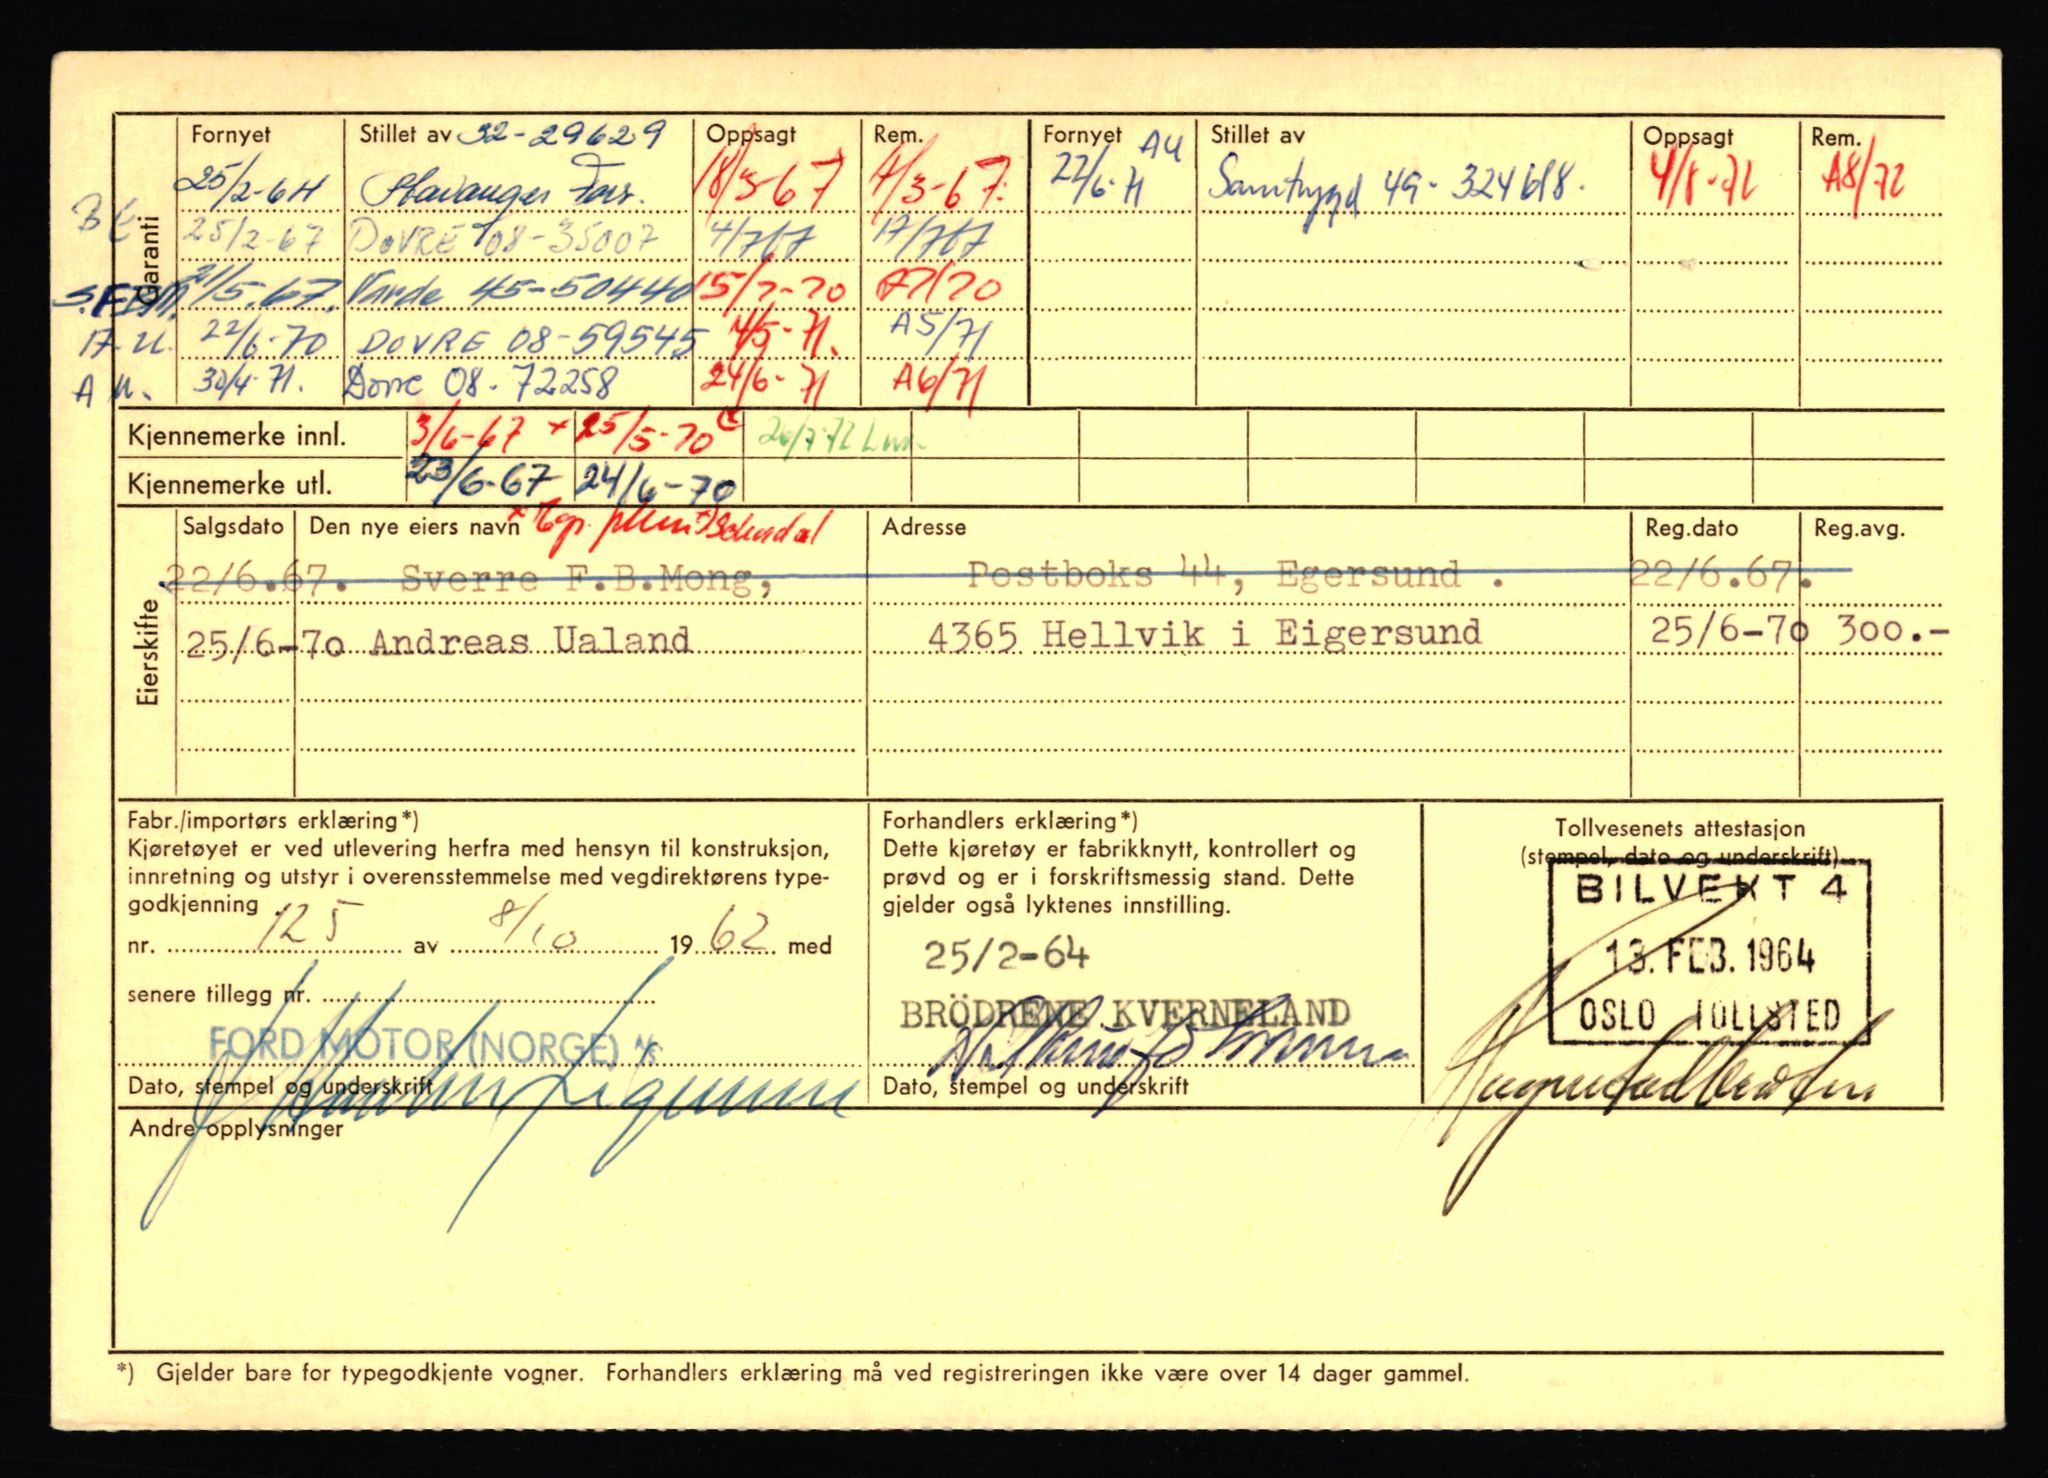 Fornyet Stillet av 32-29629 Oppsagt Rem. Fornyet AU Stillet av Oppsagt Rem.
25/2-64 Stavanger Fors. 18/3-67 4/3-67. 22/6-71 Samtrygd 49-324618. 4/8-72 A8/72
25/2-67 DOVRE 08-35007 4/767 17/767
Garanti
21/5.67. Varde 45-50440 15/7-70 A7/70
A.U. 22/6-70 DOVRE 08-59545 4/5-71. A5/71
A U. 30/4-71. Dovre 08-72258 24/6-71 A6/71
Kjennemerke innl. 3/6-67 + 25/5-70 26/7-72
Kjennemerke utl. 23/6-67 24/6-70
Eierskifte
Salgsdato Den nye eiers navn Adresse Reg.dato Reg.avg.
22/6.67. Sverre F.B.Mong, Postboks 44, Egersund . 22/6.67.
25/6-70 Andreas Ualand 4365 Hellvik i Eigersund 25/6-70 300.-
Fabr./importørs erklæring*)
Kjøretøyet er ved utlevering herfra med hensyn til konstruksjon,
innretning og utstyr i overensstemmelse med vegdirektørens type-
godkjenning
nr. 125 av 8/10 1962 med
senere tillegg nr.
FORD MOTOR (NORGE) A/S
Dato, stempel og underskrift
Forhandlers erklæring*)
Dette kjøretøy er fabrikknytt, kontrollert og
prøvd og er i forskriftsmessig stand. Dette
gjelder også lyktenes innstilling.
25/2-64
BRÖDRENE KVERNELAND
Dato, stempel og underskrift
Tollvesenets attestasjon
(stempel, dato og underskrift)
BILVEKT 4
13. FEB. 1964
OSLO TOLLSTED
Andre opplysninger
*) Gjelder bare for typegodkjente vogner. Forhandlers erklæring må ved registreringen ikke være over 14 dager gammel.